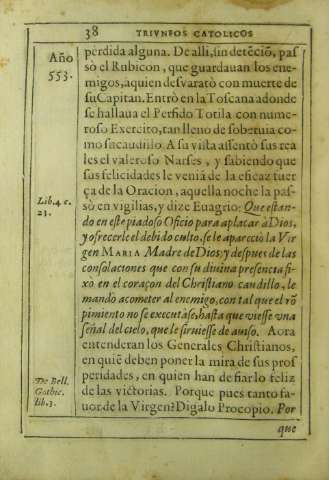 38 TRIVNFOS CATOLICOS
Año
553.
perdida alguna. De alli, sin detẽciõ, pas
sò el Rubicon, que guardauan los ene-
migos, a quien desvaratò con muerte de
su Capitan. Entrò en la Toscana adonde
se hallaua el Perfido Totila con nume-
roso Exercito, tan lleno de soberuia co-
mo su caudillo. A su vista assentò sus rea
les el valeroso Narses, y sabiendo que
sus felicidades le veniã de la eficaz fuer
ça de la Oracion, aquella noche la pas-
sò en vigilias, y dize Euagrio: Que estan-
Lib. 4 c.
23.
do en este piadoso Oficio para aplacar à Dios,
y ofrecerle el debido culto, se le apareciò la Vir
gen MARIA Madre de Dios; y despues de las
consolaciones que con su diuina presencia fi-
xò en el coraçon del Christiano caudillo, le
mandò acometer al enemigo, con tal que el rõ
pimiento no se executàse, hasta que viesse vna
señal del cielo, que le siruiesse de auiso. Aora
entenderan los Generales Christianos,
en quiẽ deben poner la mira de sus prof
peridades, en quien han de fiar lo feliz
De Bell.
Gothic.
lib. 3.
de las victorias. Porque pues tanto fa-
uor de la Virgen? Digalo Procopio. Por
que